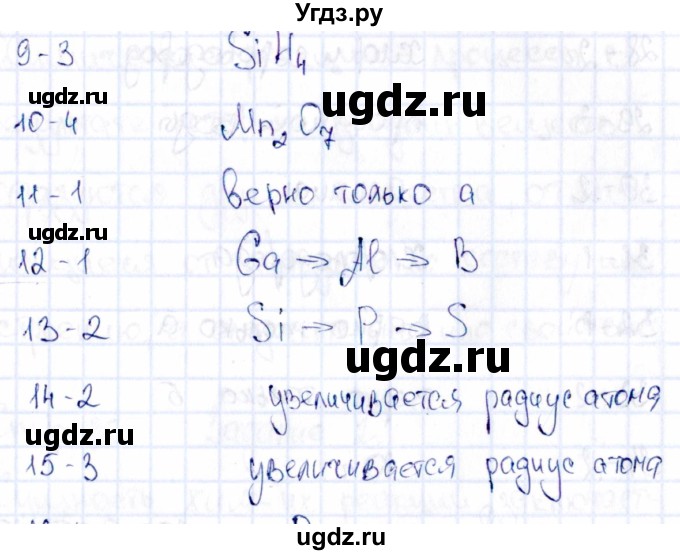 Угдз.ру
9-3 SiH4
ugdz.ru
ugdz.ru
10-4 Mn2O7
11-1 верно только а
ugdz.ru
12-1 Ga → Al → B
13-2 Si → P → S
ugdz.ru
14-2 увеличивается радиус атома
ugdz.ru
15-3 увеличивается радиус атома